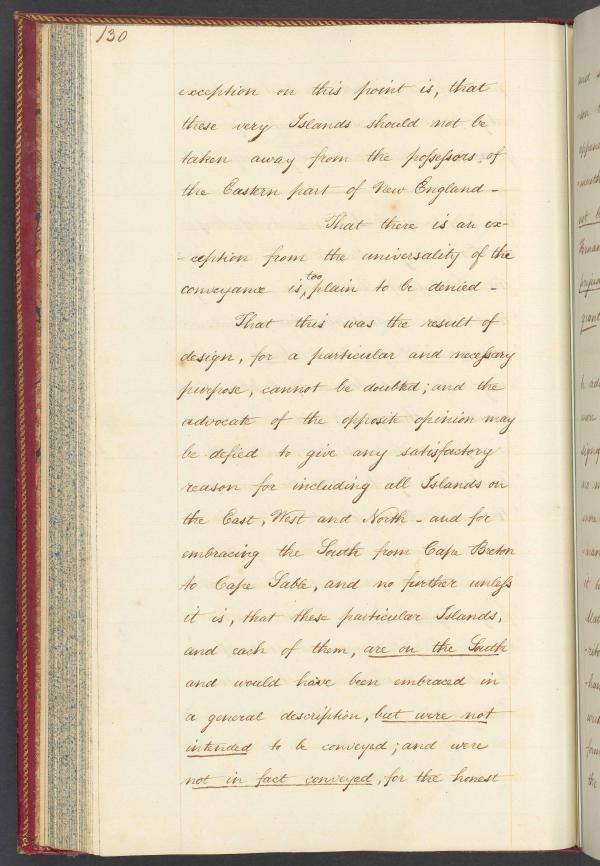 130
exception on this point is, that
these very Islands should not be
taken away from the possessors of
the Eastern part of New England -
That there is an ex-
-ception from the universality of the
conveyance is, too plain to be denied -
That this was the result of
design, for a particular and necessary
purpose, cannot be doubted; and the
advocate of the opposite opinion may
be defied to give any satisfactory
reason for including all Islands on
the East, West and North - and for
embracing the South from Cape Breton
to Cape Sable, and no further unless
it is, that these particular Islands,
and each of them, are on the South
and would have been embraced in
a general description, but were not
intended to be conveyed; and were
not in fact conveyed, for the honest